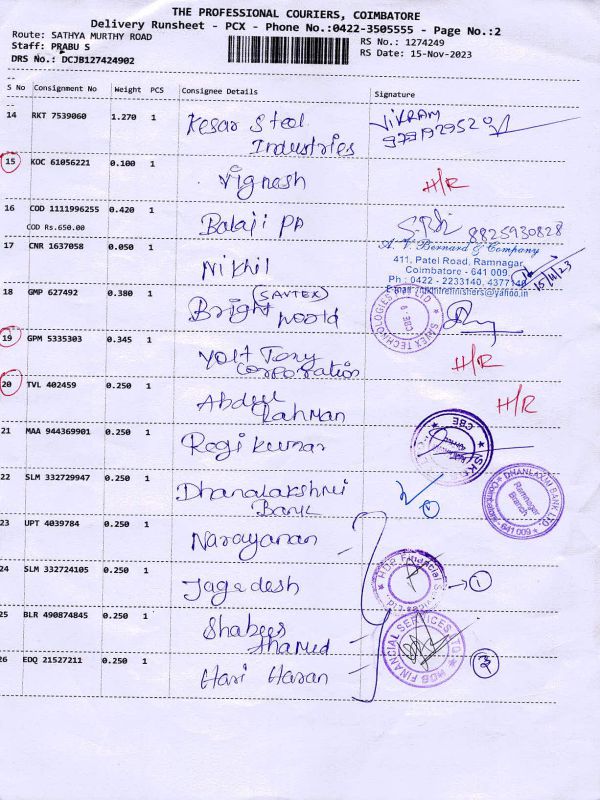 THE PROFESSIONAL COURIERS, COIMBATORE
Delivery Runsheet - PCX - Phone No.:0422-3505555 - Page No.:2
Route: SATHYA MURTHY ROAD
RS No.: 1274249
Staff: PRABU S
RS Date: 15-Nov-2023
DRS No.: DCJB127424902
S No Consignment No Weight PCS Consignee Details Signature
14 RKT 7539060 1.270 1 Kesar Steel
Industries
VIKRAM
15 KOC 61056221 0.100 1 Vignesh H/R
16 COD 1111996255 0.420 1 Balaji PP 8825930828
COD Rs.650.00
17 CNR 1637058 0.050 1 Nikhil
A. V. Bernard & Company
411, Patel Road, Ramnagar,
Coimbatore - 641 009.
Ph : 0422 - 2233140, 4377140
15/11/23
18 GMP 627492 0.380 1 Bright (SAVTEX) World
TECHNOLOGIES
CBE - 9
19 GPM 5335303 0.345 1 Volt Tony
Corporation
H/R
20 TVL 402459 0.250 1 Abdul
Rahman
H/R
21 MAA 944369901 0.250 1 Rogi Kumar
CBE
22 SLM 332729947 0.250 1 Dhanalakshmi
Bank
1
DHANLAXMI BANK LTD.
Ramnagar
Branch
Coimbatore - 641 009
23 UPT 4039784 0.250 1 Narayanan
24 SLM 332724105 0.250 1 Jagadesh
HDB Financial Services Ltd.
1
25 BLR 490874845 0.250 1 Shabees
Ahamed
26 EDQ 21527211 0.250 1 Hari Haran
HDB FINANCIAL SERVICES LTD
3